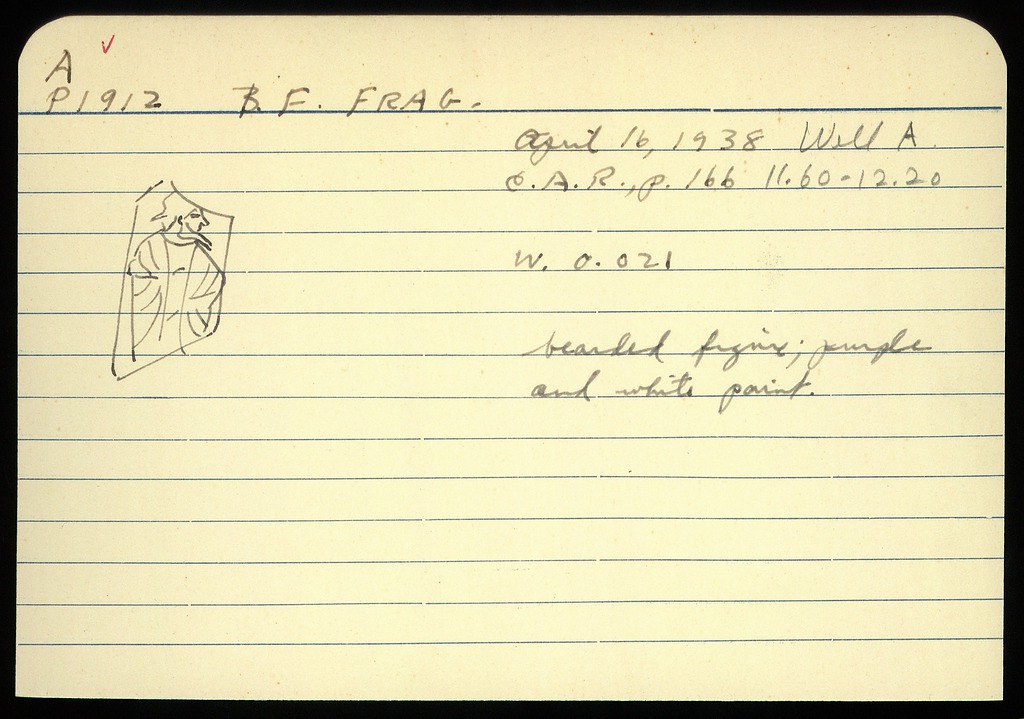 A
P1912 B.F. FRAG.
April 16, 1938 Well A
O.A.R., p. 166 11.60-12.20
W. 0.021
bearded figure; purple
and white paint.